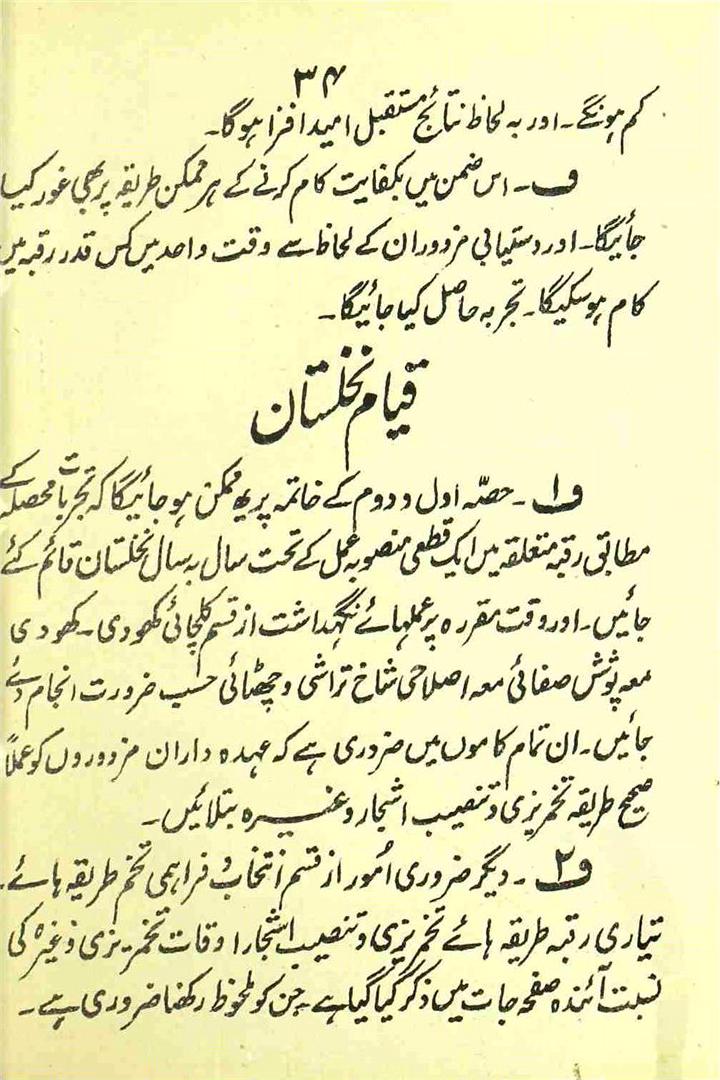 ۳۴
کم ہونگے۔ اور بہ لحاظ نتائج مستقبل امید افزا ہوگا۔
ف۔ اس ضمن میں بکفایت کام کرنے کے ہر ممکن طریقہ پر بھی غور کیا
جائیگا۔ اور دستیابی مزدوران کے لحاظ سے وقت واحد میں کس قدر رقبہ میں
کام ہوسکیگا۔ تجربہ حاصل کیا جائیگا۔
قیام نخلستان
ف۱۔ حصّہ اول و دوم کے خاتمہ پر یہ ممکن ہو جائیگا کہ تجربات محصلہ کے
مطابق رقبہ متعلقہ میں ایک قطعی منصوبہ عمل کے تحت سال بہ سال نخلستان قائم کئے
جائیں۔ اور وقت مقررہ پر عملہائے نگہداشت از قسم کلچائی کھودی۔ کھودی
معہ پوشش صفائی معہ اصلاحی شاخ تراشی و چھٹائی حسب ضرورت انجام دئے
جائیں۔ ان تمام کاموں میں ضروری ہے کہ عہدہ داران مزدوروں کو عملاً
صحیح طریقہ تخمریزی و تنصیب اشجار وغیرہ بتلائیں۔
ف۲۔ دیگر ضروری اُمور از قسم انتخاب و فراہمی تخم طریقہ ہائے
تیاری رقبہ طریقہ ہائے تخمریزی و تنصیب اشجار اوقات تخمریزی وغیرہ کی
نسبت آئندہ صفحہ جات میں ذکر کیا گیا ہے جن کو ملحوظ رکھنا ضروری ہے۔